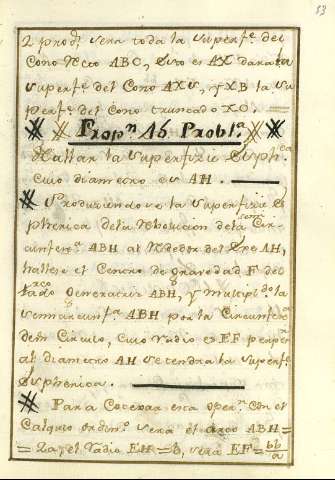 53
2 prod.s sera toda la superf.e del
Cono Recto ABC, Esto es AX dara la
superf.e del Cono AXS, y XB la su
perf.e del Cono truncado XC.
Propn 16. Probl.a
Hallar la superfizie Esph.ca
cuio diametro es AH.
Produziendose la superfizie Es
pherica de la Revolucion de la semi Cir-
cunfer.a ABH al Rededor del Exe AH,
hallese el Centro de gravedad F del
arco generatriz ABH, y multipl.do la
semicircunf.a ABH por la Circunfer.a
del Circulo, cuio radio es EF perpen.r
al diametro AH se tendra la superf.e
Espherica.
Para Cotexar esta oper.n con el
Calculo ordin.o sera el arco ABH=
=2a, el radio EH=b, sera EF=bb/a